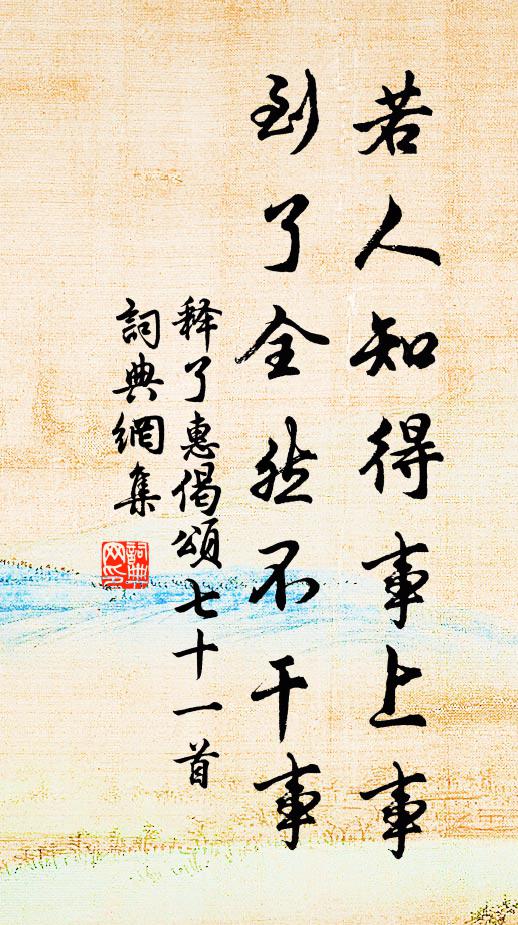 若人知得事上事
到了全然不干事
释了惠偈頌七十一首
詞典網集
詞典
网印